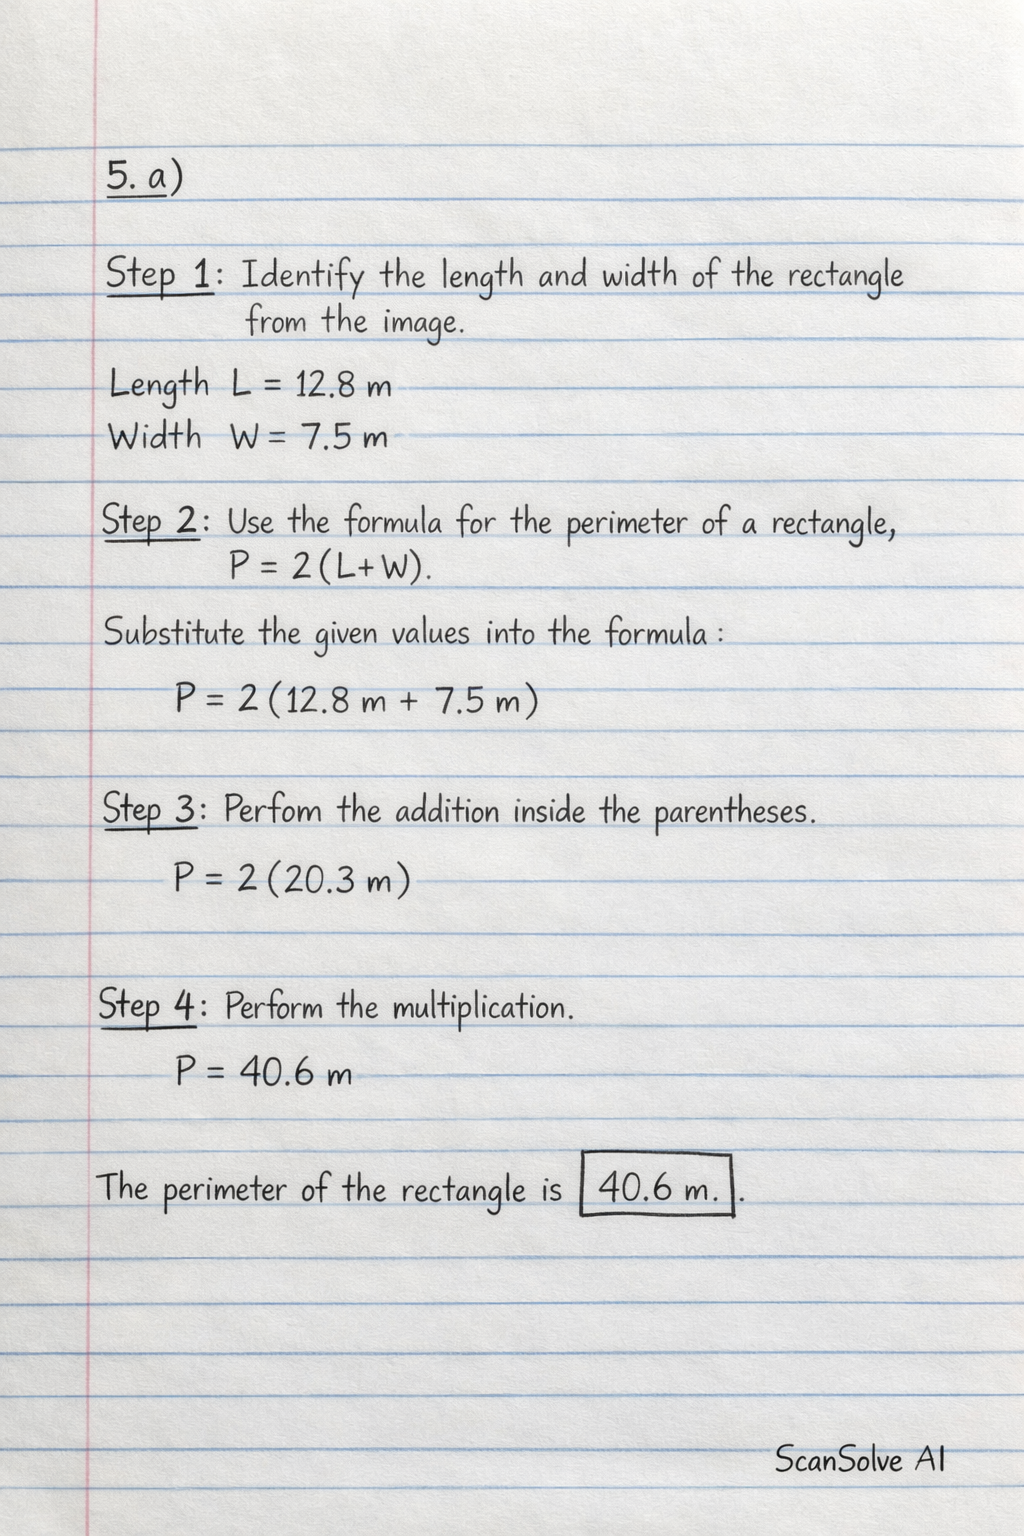 5. a)
Step 1: Identify the length and width of the rectangle
from the image.
Length L = 12.8 m
Width W = 7.5 m
Step 2: Use the formula for the perimeter of a rectangle,
P = 2(L+W).
Substitute the given values into the formula:
P = 2(12.8 m + 7.5 m)
Step 3: Perfom the addition inside the parentheses.
P = 2(20.3 m)
Step 4: Perform the multiplication.
P = 40.6 m
The perimeter of the rectangle is 40.6 m. .
ScanSolve AI